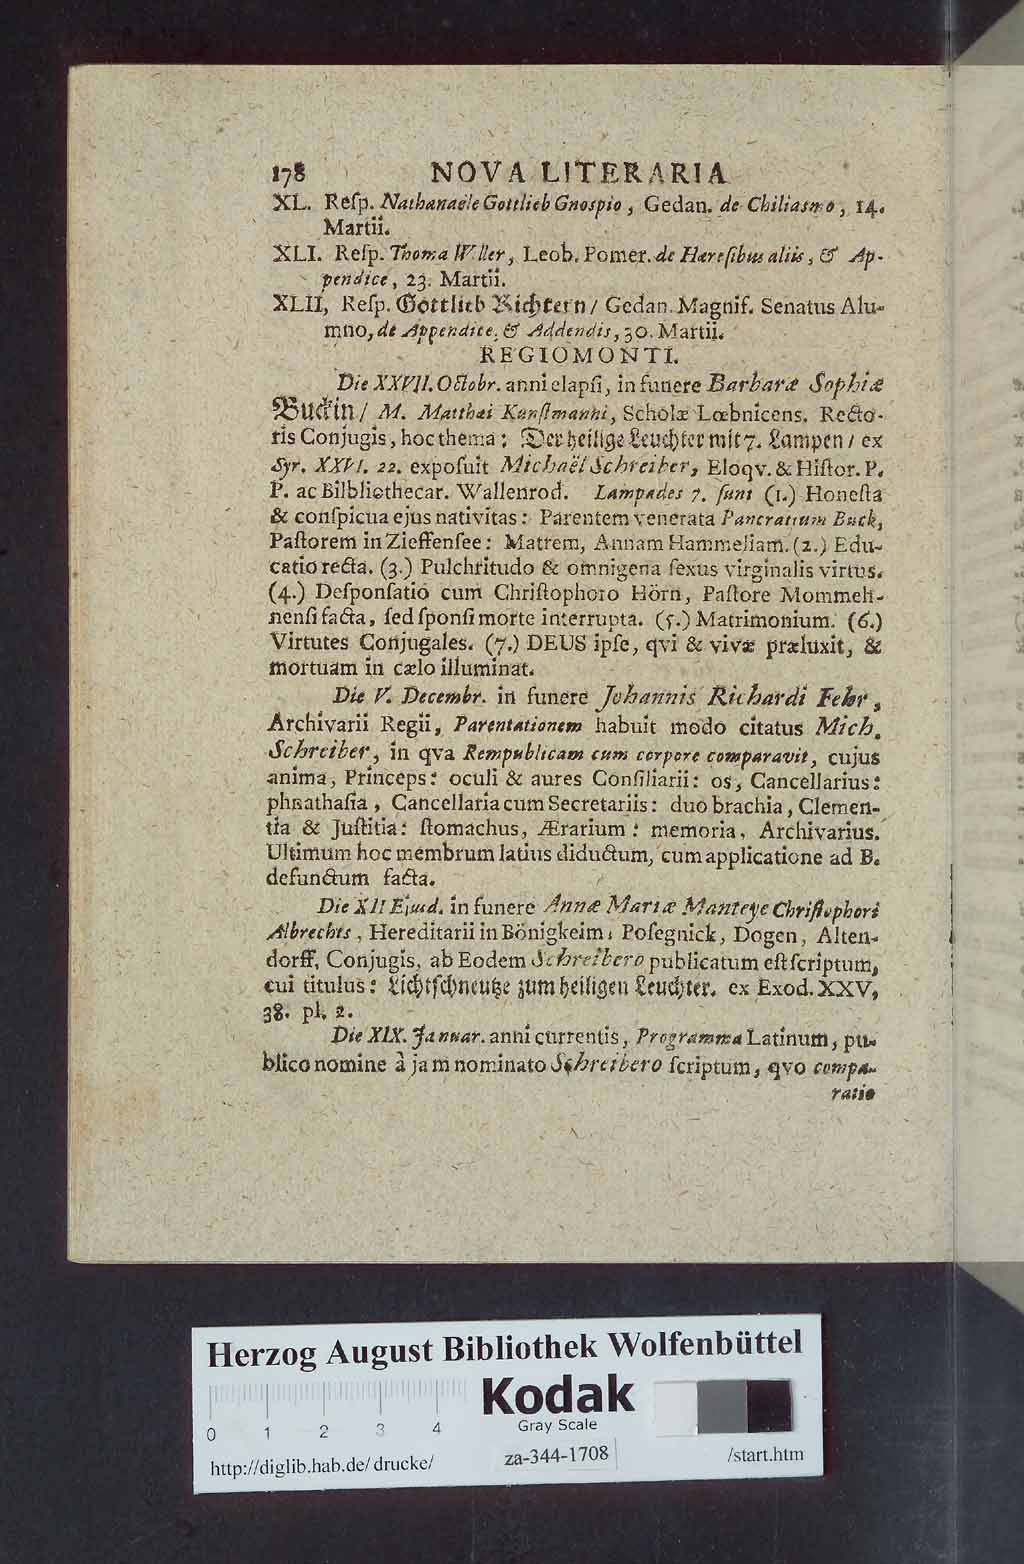 178 NOVA LITERARIA
XL. Reſp. Nathanaële Gottlieb Gnospio, Gedan. de Chiliasmo, 14.
Martii.
XLI. Reſp. Thoma Wller, Leob. Pomer. de Hæreſibus aliis, & Ap-
pendice, 23. Martii.
XLII, Reſp. Gottlieb Richtern / Gedan. Magnif. Senatus Alu-
mno, de Appendice, & Addendis, 30. Martii.
REGIOMONTI.
Die XXVII. Octobr. anni elapſi, in funere Barbaræ Sophiæ
Buckin / M. Matthæi Kunſtmanni, Scholæ Lœbnicens. Recto-
ris Conjugis, hoc thema: Der heilige Leuchter mit 7. Lampen / ex
Syr. XXVI. 22. expoſuit Michaël Schreiber, Eloqv. & Hiſtor. P.
P. ac Bilbliothecar. Wallenrod. Lampades 7. ſunt (1.) Honeſta
& conſpicua ejus nativitas: Parentem venerata Pancratium Buck,
Paſtorem in Zieffenſee: Matrem, Annam Hammeliam. (2.) Edu-
catio recta. (3.) Pulchritudo & omnigena ſexus virginalis virtus.
(4.) Deſponſatio cum Chriſtophoro Hörn, Paſtore Mommeh-
nenſi facta, ſed ſponſi morte interrupta. (5.) Matrimonium. (6.)
Virtutes Conjugales. (7.) DEUS ipſe, qvi & vivæ præluxit, &
mortuam in cælo illuminat.
Die V. Decembr. in funere Johannis Richardi Fehr,
Archivarii Regii, Parentationem habuit modo citatus Mich.
Schreiber, in qva Rempublicam cum corpore comparavit, cujus
anima, Princeps: oculi & aures Conſiliarii: os, Cancellarius:
phnathaſia, Cancellaria cum Secretariis: duo brachia, Clemen-
tia & Juſtitia: ſtomachus, Ærarium: memoria, Archivarius.
Ultimum hoc membrum latius diductum, cum applicatione ad B.
defunctum facta.
Die XII Ejusd. in funere Annæ Mariæ Manteye Chriſtophori
Albrechts, Hereditarii in Bönigkeim, Poſegnick, Dogen, Alten-
dorff, Conjugis, ab Eodem Schreibero publicatum eſt ſcriptum,
cui titulus: Lichtſchneutze zum heiligen Leuchter. ex Exod. XXV,
38. pl. 2.
Die XIX. Januar. anni currentis, Programma Latinum, pu-
blico nomine à jam nominato Schreibero ſcriptum, qvo compa-
ratio
Herzog August Bibliothek Wolfenbüttel
Kodak
Gray Scale
0 1 2 3 4
http://diglib.hab.de/drucke/ za-344-1708 /start.htm